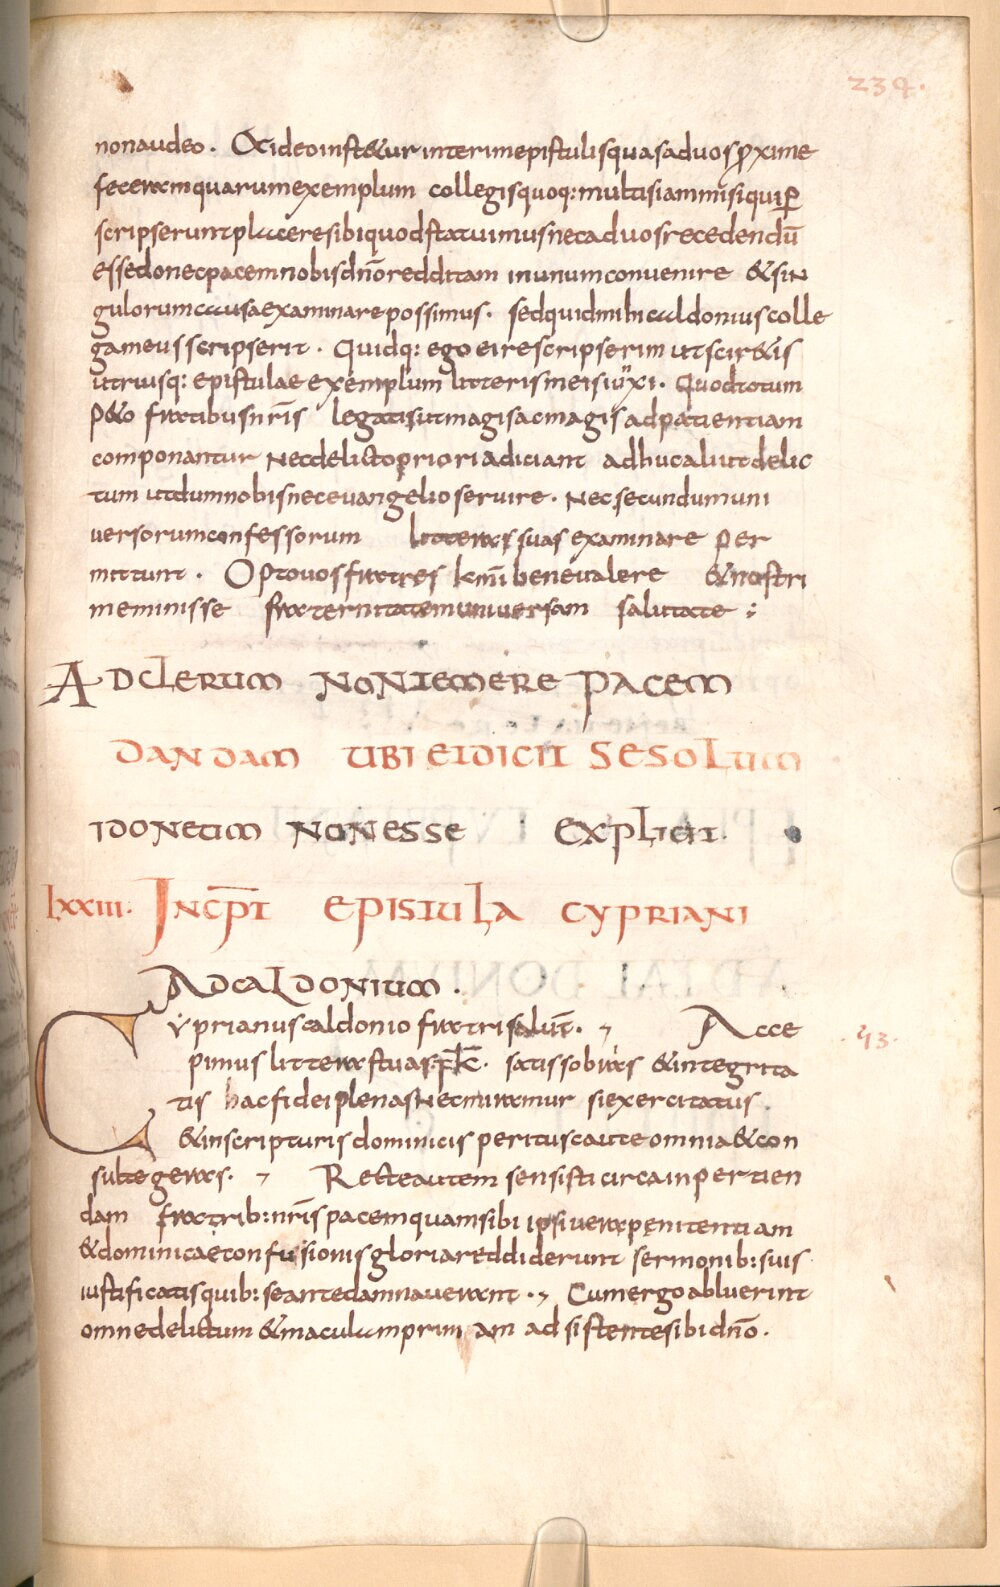 234.
non audeo. Ac ideo instetur interim epistulis quas ad uos ꝓxime
feceram quarum exemplum collegis quoq: multis iam misi qui ꝑ
scripserunt placere sibi quod statuimus nec ab uos recedendū
esse donec pacem nobis dn̄o redditam in unum conuenire & sin
gulorum causa examinare possimus. sed quid mihi caldonius colle
ga meus scripserit. Quidq: ego ei rescripserim ut scir&is
utriusq: epistulae exemplum litteris meis iūxi. Quod totum
p&o fratribus nr̄is legatis ut magis ac magis ad patientiam
componantur Nec delicto priori adiciant adhuc aliut delic
tum ut dum nobis nec euangelio seruire. Nec secundum uni
uersorum confessorum litteras suas examinare per
mittunt. Opto uos fratres km̄i bene ualere & nostri
meminisse fraternitatem uniuersam salutate ;
AD CLERUM NON TEMERE PACEM
DANDAM UBI ET DICIT SE SOLUM
IDONEUM NON ESSE EXPLICIT.
lxxiii. INCP̄T EPISTULA CYPRIANI
AD CALDONIUM.
Cyprianus caldonio fratri salūt. Acce
43.
pimus litteras tuas f̄k̄. satis sobrias & integrita
tis hac fidei plenas Nec miramur si exercitatus
& in scripturis dominicis peritus caute omnia & con
sulte geras. Recte autem sensisti circa inpertien
dam fratrib: nr̄is pacem quam sibi ipsi uera penitentiam
& dominicae confusionis gloria reddiderunt sermonib: suis
iustificatis quib: se ante damnauerant. Cum ergo abluerint
omne delictum & maculam primam adsistente sibi dn̄o.